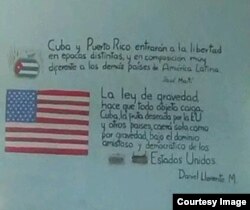 Cuba y Puerto Rico entrarán a la libertad
en épocas distintas, y en composición muy
diferente a los demás países de América Latina.
José Martí
La ley de gravedad
hace que todo objeto caiga.
Cuba, la fruta deseada por la EU
y otros países, caerá sola como
por gravedad, bajo el dominio
amistoso y democrático de los
Estados Unidos
Daniel Llorente M.
Courtesy Image